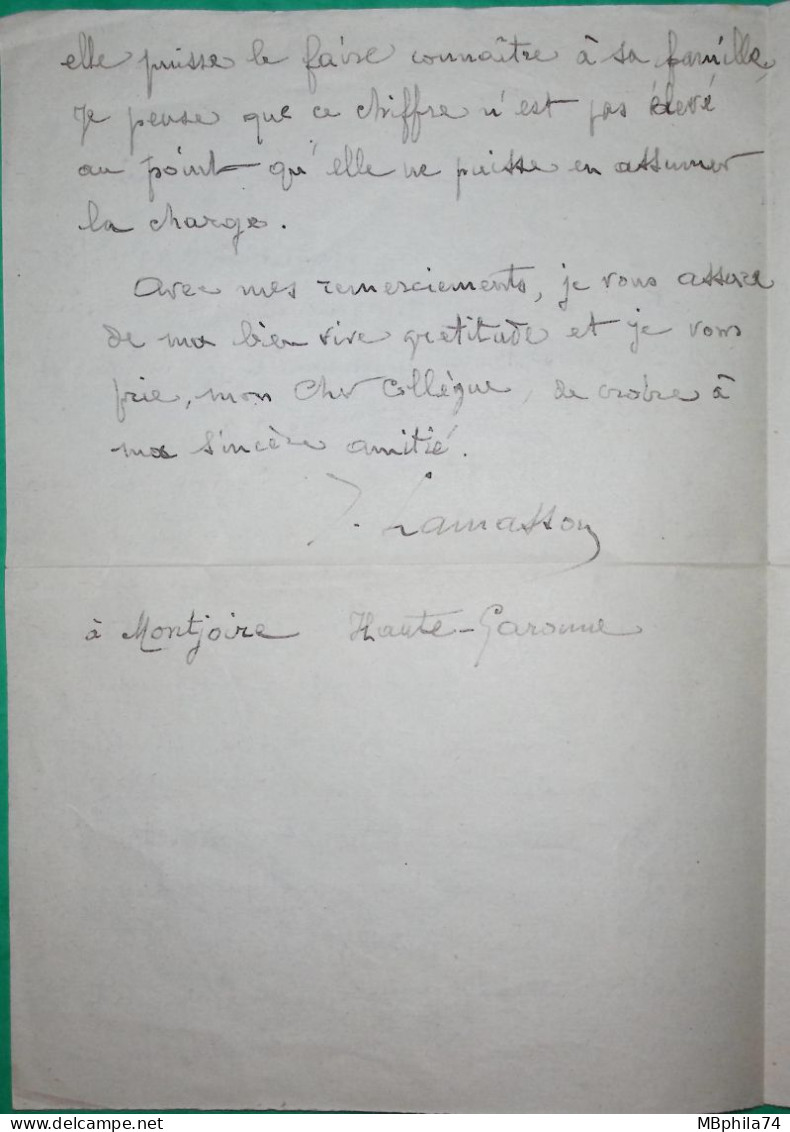 elle puisse le faire connaître à sa famille,
Je pense que ce chiffre n'est pas élevé
au point qu'elle ne puisse en assumer
la charge.
Avec mes remerciements, je vous assure
de ma bien vive gratitude et je vous
prie, mon Cher Collègue, de croire à
ma sincère amitié.
J. Lamasson
à Montjoire Haute-Garonne
MBphila74